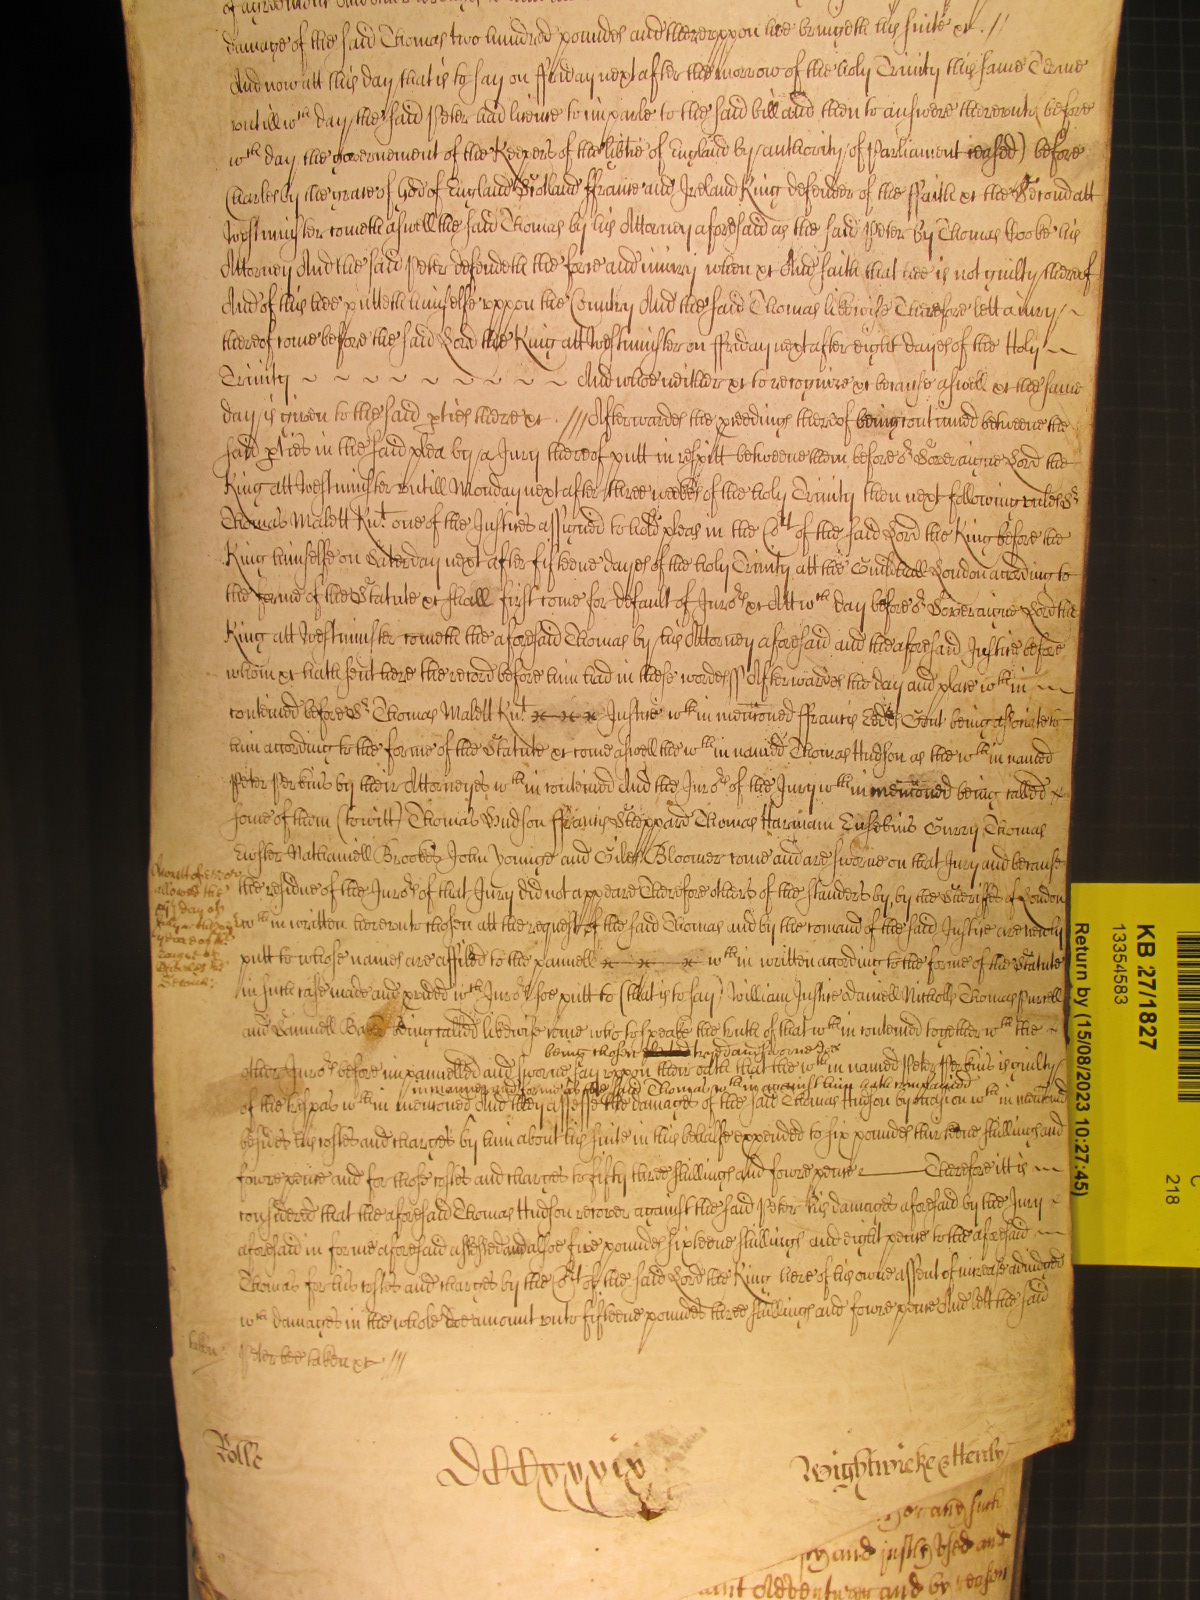 damage of the said Thomas two hundred poundes and thereuppon hee bringeth his suite &c. //
And now att this day that is to say on ffriday next after the morrow of the holy Trinity this same Terme
untill wch day the said Peter had licence to imparle to the said bill and then to answere thereunto before
wch day the governement of the Keepers of the libtie of England by authority of Parliament ceased) before
Charles by the grace of God of England Scotland ffrance and Ireland King defender of the ffaith &c the Second att
Westminster cometh aswell the said Thomas by his Attorney aforesaid as the said Peter by Thomas his
Attorney And the said Peter defendeth the force and iniury when &c And saith that hee is not guilty thereof
And of this hee putteth himselfe uppon the Country And the said Thomas likewise Therefore lett a iury
thereof come before the said Lord the King att Westminster on ffriday next after eight dayes of the Holy
Trinity And who neither &c to recognize &c because aswell &c the same
day is given to the said pties there &c. /// Afterwardes the pceedings thereof being continued betweene the
said pties in the said plea by a Jury thereof putt in respitt betweene them before or Soveraigne Lord the
King att Westminster untill Monday next after three weekes of the holy Trinity then next following unles Sr
Thomas Malett Knt one of the Justices assigned to hold pleas in the Cort of the said Lord the King before the
King himselfe on Saterday next after fifteene dayes of the holy Trinity att the Guildhall London according to
the forme of the Statute &c shall first come for default of Jurors &c Att wch day before or Soveraigne Lord the
King att Westminster cometh the aforesaid Thomas by his Attorney aforesaid and the aforesaid Justice before
whom &c hath sent here the record before him had in these wordes ss Afterwardes the day and place wthin
conteined before Sr Thomas Malett Knt Justice wthin mencioned ffrancis Gent being associate to
him according to the forme of the Statute &c come aswell the wthin named Thomas Hudson as the wthin named
Peter Perkins by their Attorneyes wthin conteined And the Jurors of the Jury wthin mencioned being called
some of them (to witt) Thomas Hudson ffrancis Sheppard Thomas Harmam Eusebius Gurry Thomas
Nathaniell Brookes John Younge and Giles Bloomer come and are sworne on that Jury and because
the residue of the Jurors of that Jury did not appeare Therefore others of the standers by, by the Sheriffes of London
wthin written hereunto chosen att the request of the said Thomas and by the comand of the said Justice are newly
putt to whose names are affiled to the pannell wthin written according to the forme of the Statute
in such case made and pvided wch Jurors soe putt to (that is to say) William Justice Daniell Nicholls Thomas Purcell
and Samuell being called likewise come who to speake the truth of that wthin conteined together wth the
being chosen tryed and sworne doe
other Jurors before impannelled and sworne say uppon their oath that the wthin named Peter Perkins is guilty
in manner and forme as the said Thomas wthin against him hath complained
of the trespas wthin mencioned And they assesse the damages of the said Thomas Hudson by occasion wthin mencioned
besides his costes and charges by him about his suite in this behalfe expended to six poundes thirteene shillings and
foure pence and for those costes and charges to fifty three shillings and foure pence Therefore itt is
considered that the aforesaid Thomas Hudson recover against the said Peter his damages aforesaid by the Jury
aforesaid in forme aforesaid assessed and alsoe five poundes sixteene shillings and eight pence to the aforesaid
Thomas for his costes and charges by the Cort of the said Lord the King here of his owne assent of increase adiudged
wch damages in the whole doe amount unto fifteene poundes three shillings and foure pence And lett the said
Peter bee taken &c ///
taken
Rolle
DCCxxxix
Wightwicke & Henly
and such
and justly used and
and by reason
KB 27/1827
13354583
Return by (15/08/2023 10:27:45)
218